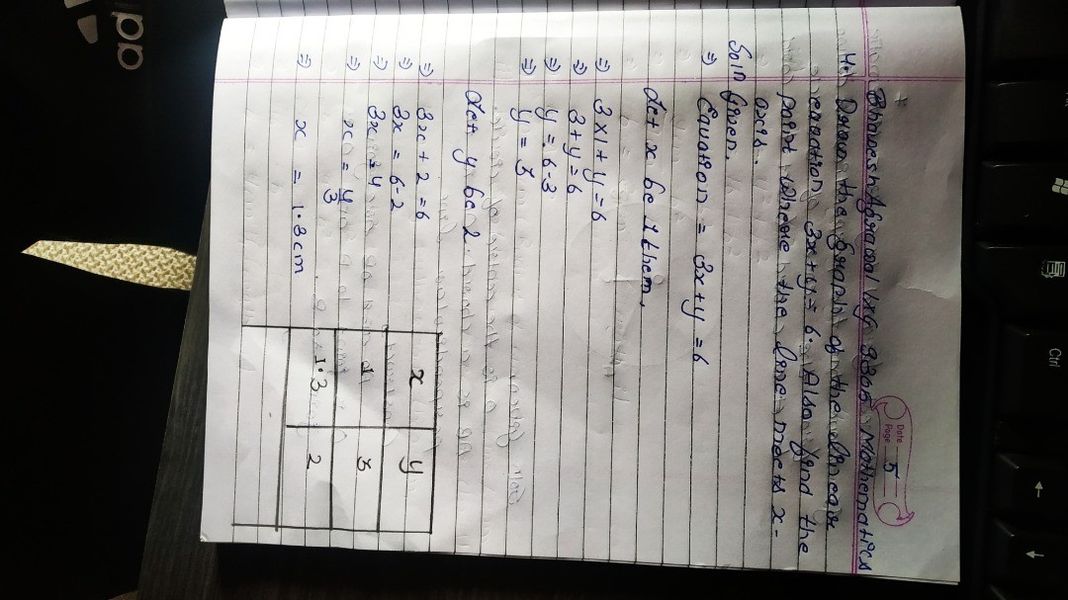 Date
Page 5
Bhavesh Agrawal 9305 Mathematics
Draw the graph of the linear
equation 3x+y=6. Also find the
point where the line meets x-
axis.
Soln given,
⇒ Equation = 3x+y=6
Let x be 1 them,
⇒ 3×1+y=6
⇒ 3+y=6
⇒ y=6-3
⇒ y=3
Let y be 2
⇒ 3x+2=6
⇒ 3x=6-2
⇒ 3x=4
⇒ x=4/3
⇒ x = 1.3cm
x y
1 3
1.3 2
Ctrl